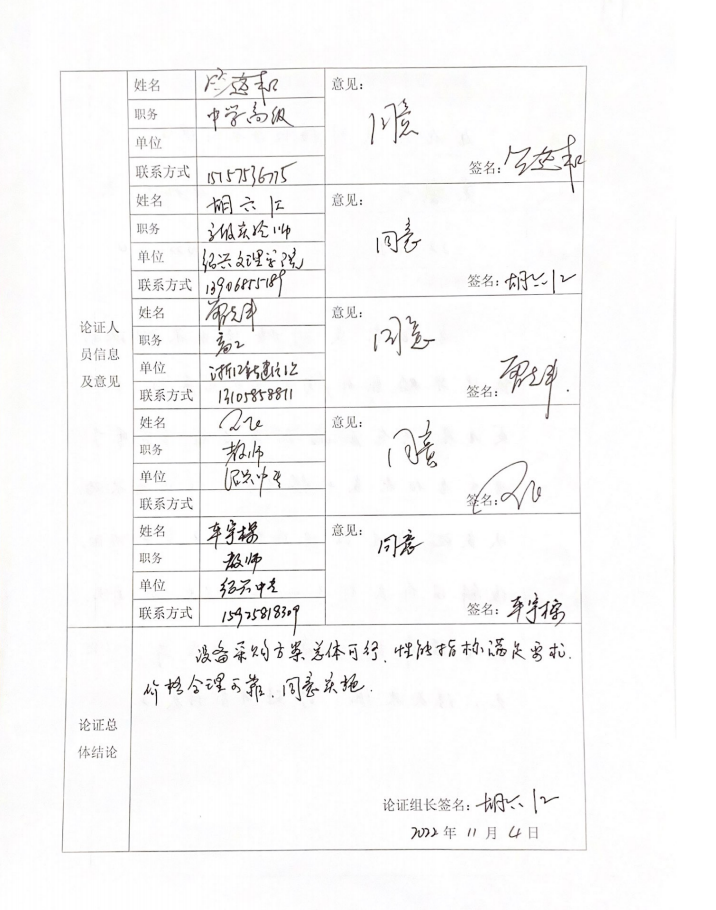 论证人
员信息
及意见
姓名
职务 中学高级
单位
联系方式 15757536775
意见：
同意
签名：
姓名 胡六江
职务 高级实验师
单位 绍兴文理学院
联系方式 13906855189
意见：
同意
签名：胡六江
姓名
职务 高工
单位
联系方式 13105858811
意见：
同意
签名：
姓名
职务 教师
单位 绍兴中专
联系方式
意见：
同意
签名：
姓名 车宇樑
职务 教师
单位 绍兴中专
联系方式 15925818309
意见：
同意
签名：车宇樑
论证总
体结论
设备采购方案总体可行、性能指标满足要求.
价格合理可靠.同意实施.
论证组长签名：胡六江
2022 年 11 月 4 日